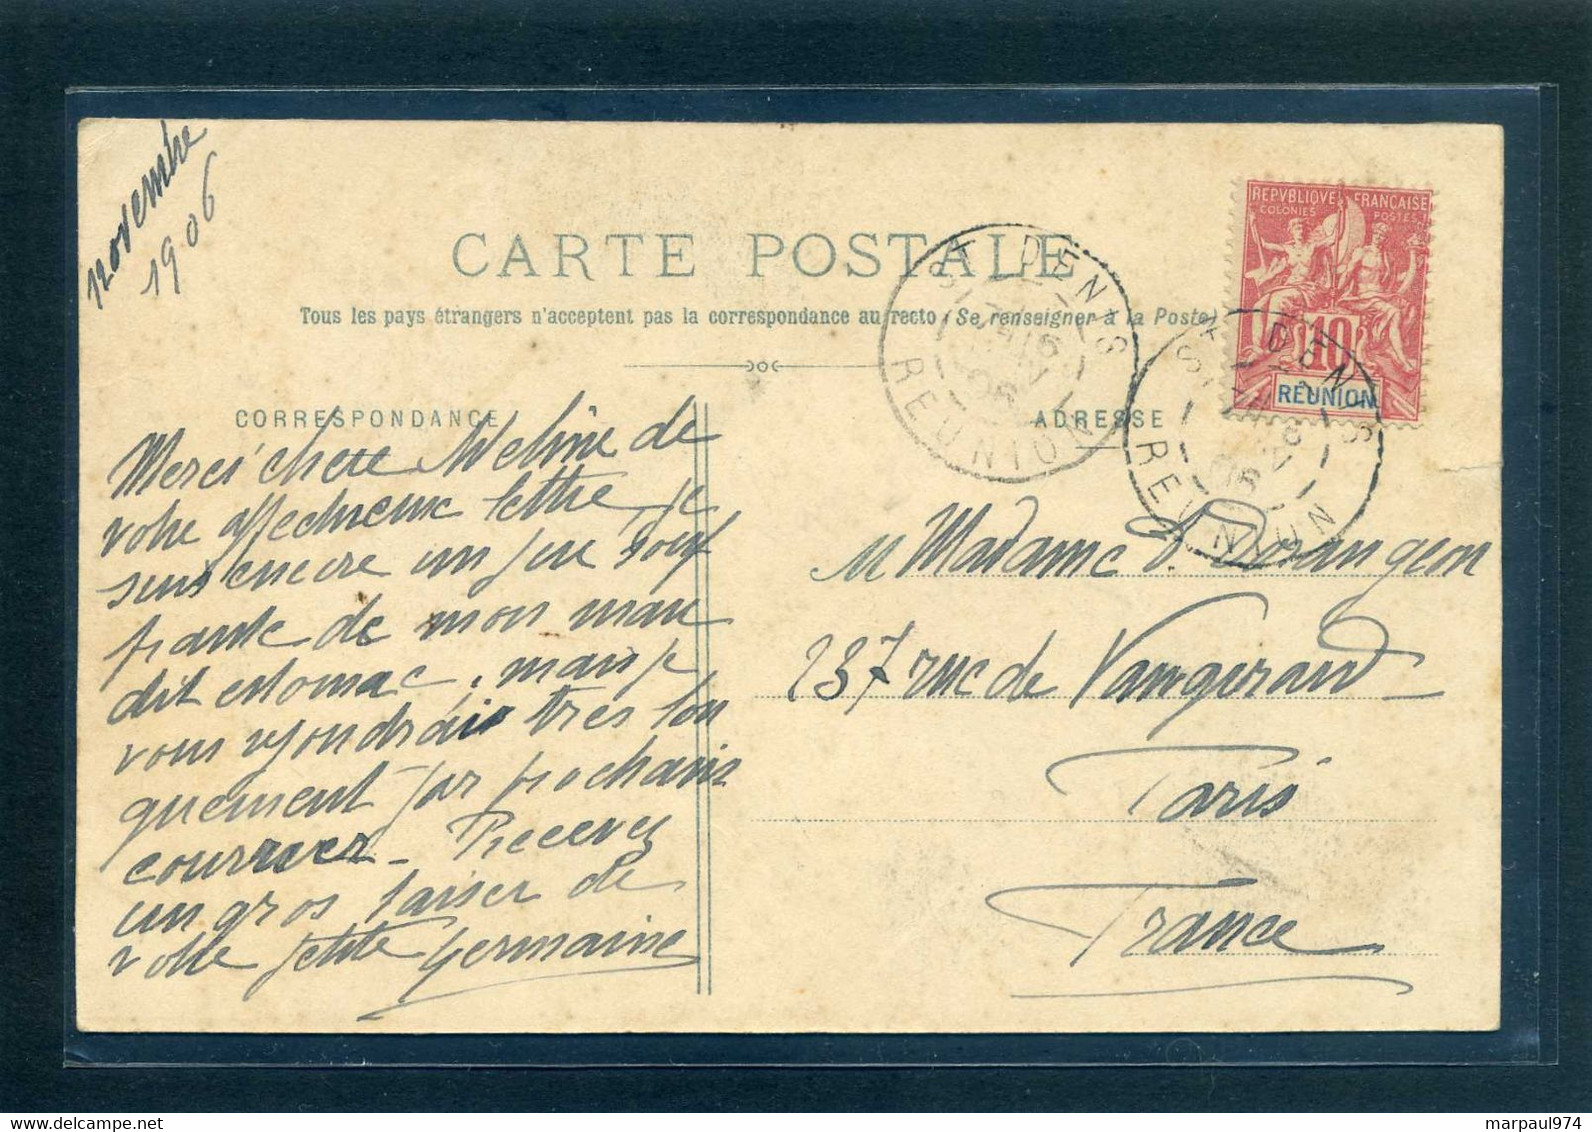 novembre
1906
CARTE POSTALE
Tous les pays étrangers n'acceptent pas la correspondance au recto (Se renseigner à la Poste)
CORRESPONDANCE
ADRESSE
REPVBLIQVE FRANÇAISE
COLONIES POSTES
10
RÉUNION
ST DENIS
RÉUNION
ST DENIS
RÉUNION
Merci chere de
votre affectueuse lettre je
suis encore un peu souf
frante de mon mau
dit estomac, mais je
vous répondrais tres lon
guement par prochain
courrier - Recevez
un gros baiser de
votre petite Germaine
M Madame
237 rue de Vaugirard
Paris
France
marpaul974